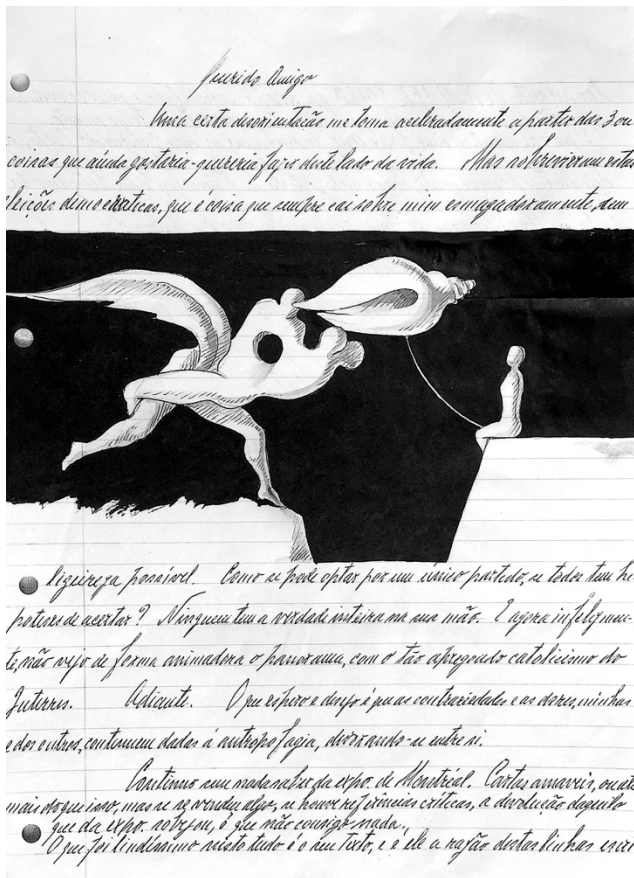 Querido Amigo
Uma certa desorientação me toma aceleradamente a partir das 3 ou
coisas que ainda gostaria-quereria fazer deste lado da vida. Mas sobrevieram estas
eleições democráticas, que é coisa que sempre cai sobre mim esmagadoramente, sem
ligeireza possível. Como se pode optar por um único partido, se todos tem hi
poteses de acertar? Ninguem tem a verdade inteira na sua mão. E agora infelizmen-
te, não vejo de forma animadora o panorama, com o tão apregoado catolicismo do
Guterres. Adiante. O que espero e desejo é que as contrariedades e as dores, minhas
e dos outros, continuem dadas á antropofagia, devorando-se entre si.
Continuo sem nada saber da expo. de Montréal. Cartas amaveis, ou até
mais do que isso, mas se se vendeu algo, se houve referencias criticas, a devolução daquilo
que da expo. sobejou, é que não consigo nada.
O que foi lindissimo nisto tudo é o seu texto, e é ele a razão destas linhas